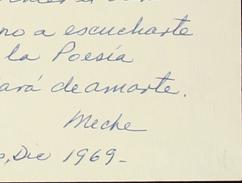 no a escucharte
la Poesía
ará de amarte.
Meche
Dic 1969-